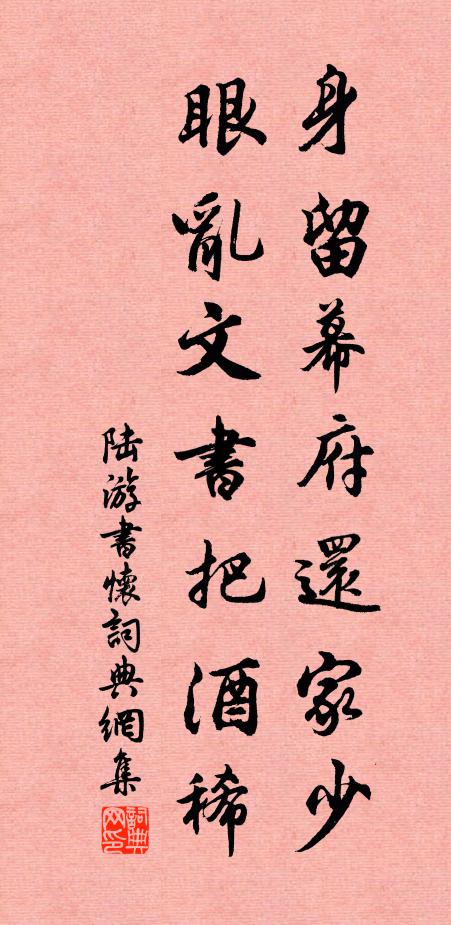 身留幕府還家少
眼亂文書把酒稀
陸游書懷詞典網集
詞典网印